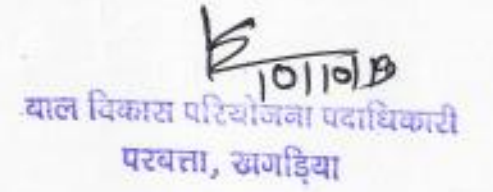 10/10/13
बाल विकास परियोजना पदाधिकारी
परबत्ता, खगड़िया